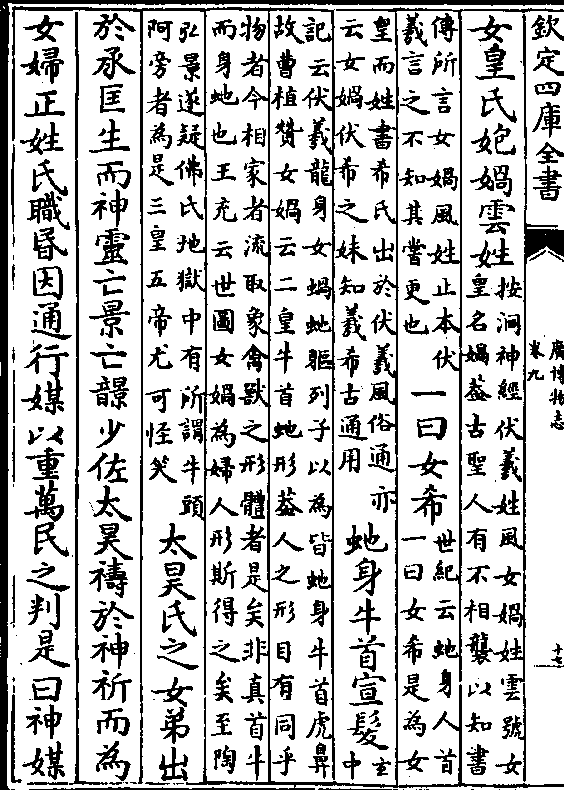 欽定四庫全書
廣博物志
卷九
十七
女皇氏妑媧雲姓按洞神經伏羲姓風女媧姓雲號女
皇名媧葢古聖人有不相襲以知書
傳所言女媧風姓止本伏
羲言之不知其嘗更也一曰女希世紀云虵身人首
一曰女希是為女
皇而姓書希氏出於伏羲風俗通亦
云女媧伏希之妹知羲希古通用虵身牛首宣髮玄
中
記云伏羲龍身女媧虵軀列子以為皆虵身牛首虎鼻
故曹植贊女媧云二皇牛首虵形葢人之形自有同乎
物者今相家者流取象禽獸之形體者是矣非真首牛
而身虵也王充云世圖女媧為婦人形斯得之矣至陶
弘景遂疑佛氏地獄中有所謂牛頭
阿旁者為是三皇五帝尤可怪笑太昊氏之女弟出
於承匡生而神靈亡景亡𩐿少佐太昊禱於神祈而為
女婦正姓氏職昏因通行媒以重萬民之判是曰神媒